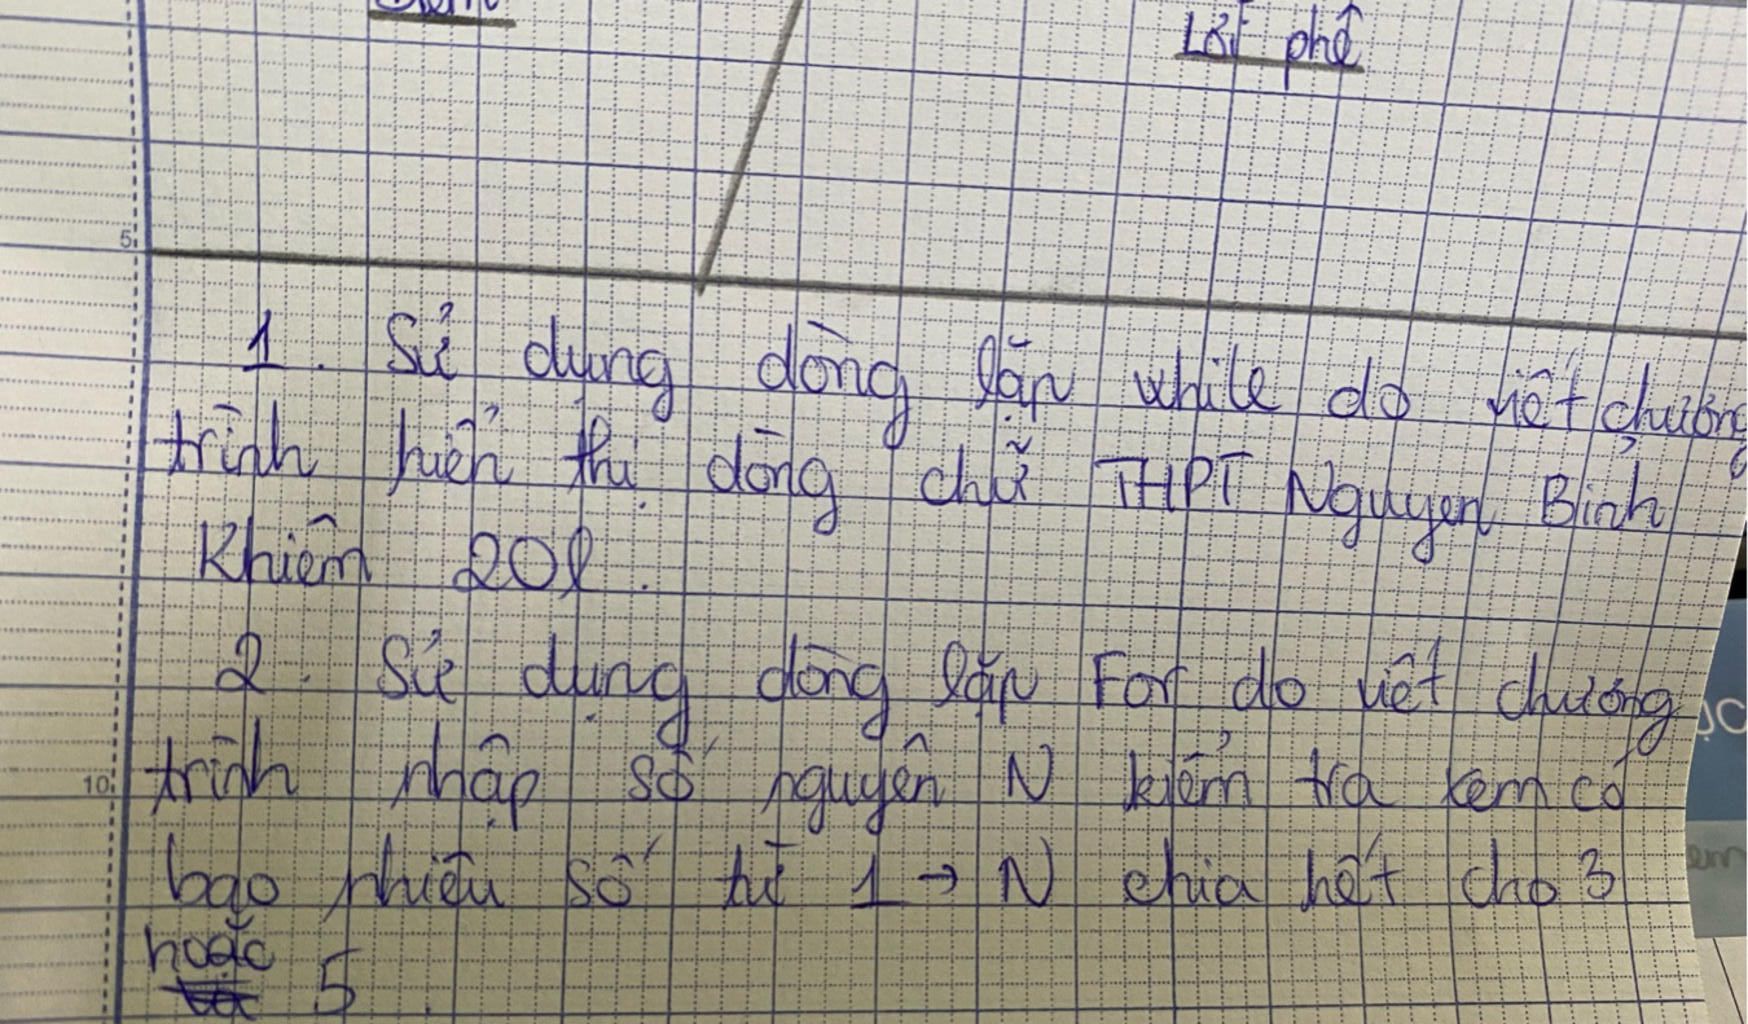 Lời phê
1. Sử dụng dòng lặp while do viết chương
trình hiển thị dòng chữ THPT Nguyen Bỉnh
Khiêm 20l.
2. Sử dụng dòng lặp For do viết chương
trình nhập số nguyên N kiểm tra xem có
bao nhiêu số từ 1 → N chia hết cho 3
hoặc 5.